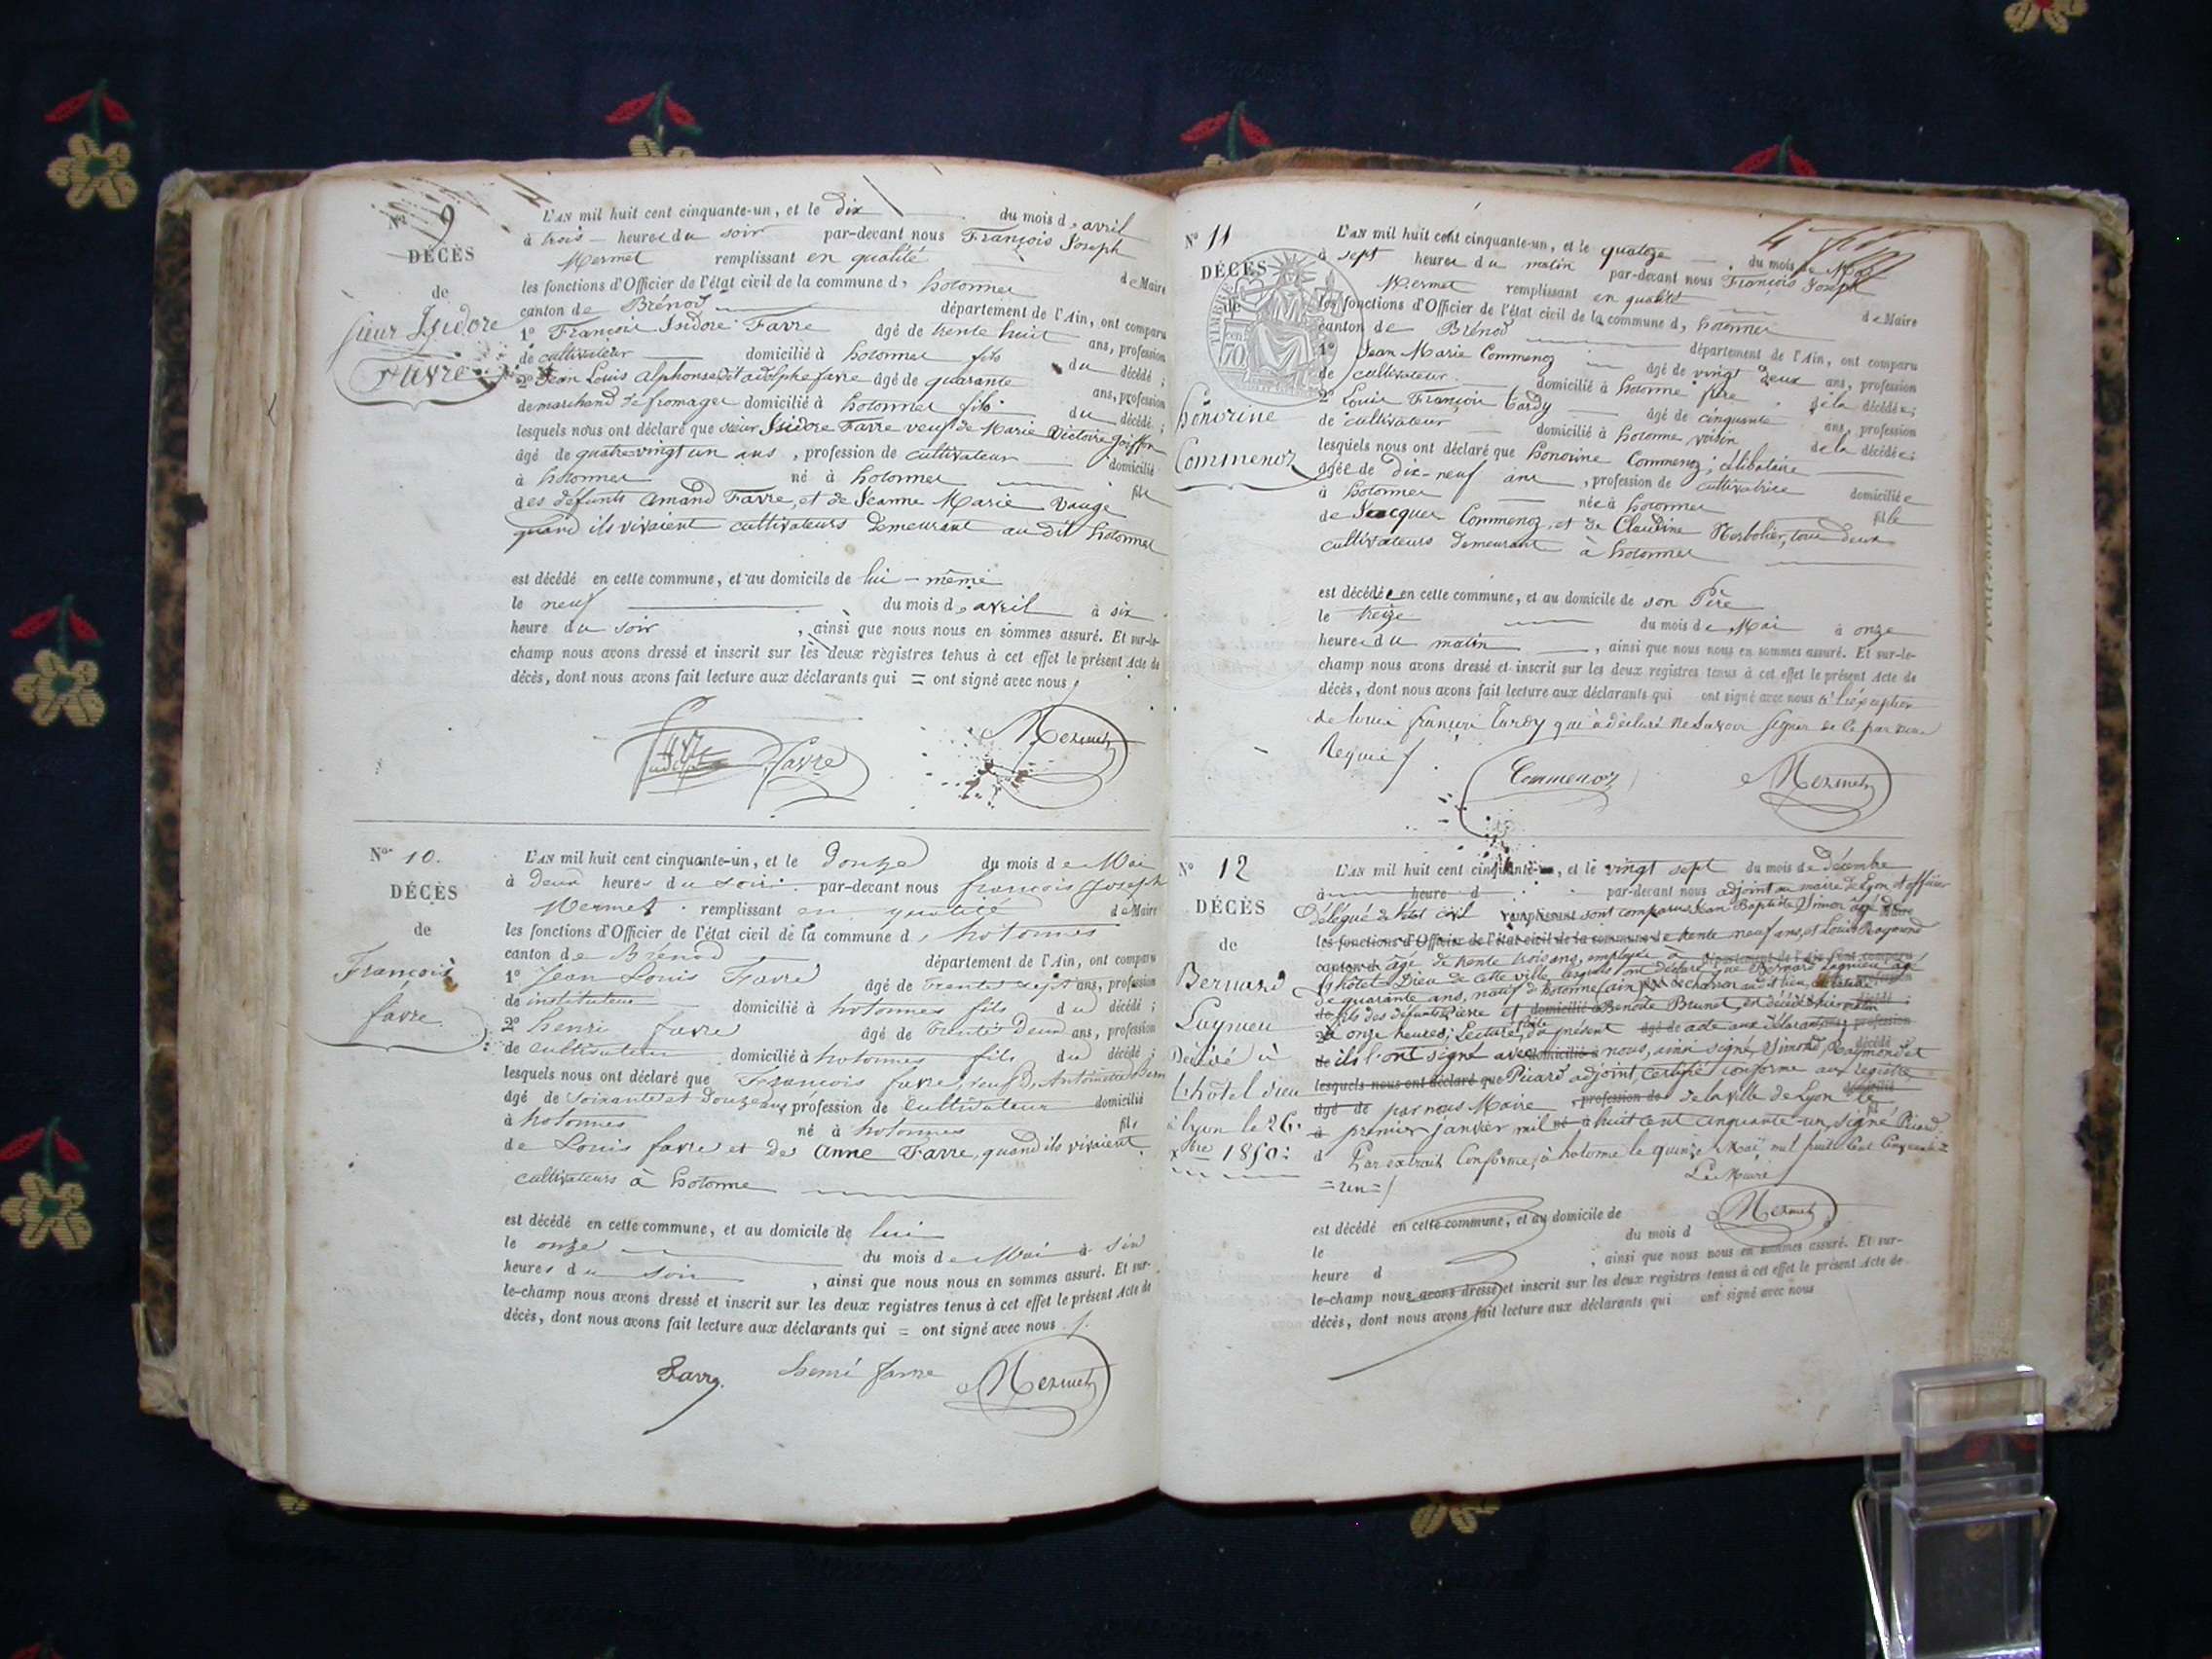 Nº 9
DÉCÈS
de
sieur Isidore
Favre
L'AN mil huit cent cinquante-un, et le dix du mois de avril
à trois heures du soir par-devant nous François Joseph
Mermet remplissant en qualité de Maire
les fonctions d'Officier de l'état civil de la commune d, hotonnes
canton de Brénod département de l'Ain, ont comparu
1º François Isidore Favre âgé de trente huit ans, profession
de cultivateur domicilié à hotonnes fils du décédé ;
2º Jean Louis alphonse dit adolphe favre âgé de quarante ans, profession
de marchand de fromages domicilié à hotonnes fils du décédé ;
lesquels nous ont déclaré que sieur Isidore Favre veuf de Marie Victoire Joiffon
âgé de quatre vingt un ans, profession de cultivateur domicilié
à hotonnes né à hotonnes fils
des défunts Amand Favre, et de Jeanne Marie Vauge
quand ils vivaient cultivateurs demeurant au dit hotonnes
est décédé en cette commune, et au domicile de lui-même
le neuf du mois de avril à six
heure du soir, ainsi que nous nous en sommes assuré. Et sur-le-
champ nous avons dressé et inscrit sur les deux registres tenus à cet effet le présent Acte de
décès, dont nous avons fait lecture aux déclarants qui = ont signé avec nous
Favre Mermet
Nº 10.
DÉCÈS
de
François
favre
L'AN mil huit cent cinquante-un, et le douze du mois de Mai
à deux heures du soir par-devant nous françois Joseph
Mermet remplissant en qualité de Maire
les fonctions d'Officier de l'état civil de la commune d, hotonnes
canton de Brénod département de l'Ain, ont comparu
1º Jean Louis Favre âgé de trente sept ans, profession
de instituteur domicilié à hotonnes fils du décédé ;
2º henri favre âgé de trente deux ans, profession
de cultivateur domicilié à hotonnes fils du décédé ;
lesquels nous ont déclaré que François favre, veuf d, Antoinette
âgé de soixante et douze ans, profession de cultivateur domicilié
à hotonnes né à hotonnes fils
de Louis favre et de Anne Favre, quand ils vivaient
cultivateurs à hotonne
est décédé en cette commune, et au domicile de lui
le onze du mois de Mai à six
heures du soir, ainsi que nous nous en sommes assuré. Et sur-
le-champ nous avons dressé et inscrit sur les deux registres tenus à cet effet le présent Acte de
décès, dont nous avons fait lecture aux déclarants qui = ont signé avec nous
Favre henri favre Mermet
Nº 11
DÉCÈS
de
honorine
Commenoz
TIMBRE
70
L'AN mil huit cent cinquante-un, et le quatoze du mois de Mai
à sept heures du matin par-devant nous François Joseph
Mermet remplissant en qualité de Maire
les fonctions d'Officier de l'état civil de la commune d, hotonnes
canton de Brénod département de l'Ain, ont comparu
1º Jean Marie Commenoz âgé de vingt deux ans, profession
de cultivateur domicilié à hotonne frère de la décédée ;
2º Louis François tardy âgé de cinquante ans, profession
de cultivateur domicilié à hotonne voisin de la décédée ;
lesquels nous ont déclaré que honorine Commenoz, célibataire
âgée de dix-neuf ans, profession de cultivatrice domiciliée
à hotonnes née à hotonnes fille
de Jacques Commenoz, et de Claudine Nerbolier, tous deux
cultivateurs demeurant à hotonnes
est décédée en cette commune, et au domicile de son Père
le treize du mois de Mai à onze
heures du matin, ainsi que nous nous en sommes assuré. Et sur-le-
champ nous avons dressé et inscrit sur les deux registres tenus à cet effet le présent Acte de
décès, dont nous avons fait lecture aux déclarants qui ont signé avec nous à l'éxception
de louis françois tardy qui a déclaré ne savoir signer de ce par nous
Requis
Commenoz Mermet
Nº 12
DÉCÈS
de
Bernard
Laynieu
Décédé à
L'hôtel dieu
à lyon le 26.
xbre 1850:
L'AN mil huit cent cinquante-un, et le vingt sept du mois de Décembre
à heure d par-devant nous adjoint au maire de Lyon et officier
Délégué de l'état civil remplissant sont comparus Jean Baptiste Simon âgé de Maire
les fonctions d'Officier de l'état civil de la commune de trente neuf ans, et Louis Raymond
canton d âgé de trente trois ans, employés à département de l'Ain, ont comparu
L'hôtel-Dieu de cette ville lesquels ont déclaré que Bernard Laynieu âgé
de quarante ans, natif de hotonne (ain)
fils des défunts Pierre et domicilié à Benoite Brunet, est décédé hier
à onze heures ; Lecture faite du présent âgé de acte aux déclarants profession
de ils l'ont signé avec domicilié à nous, ainsi signé, Simond, Raymond et
lesquels nous ont déclaré que Picard adjoint, Certifié conforme aux registres
âgé de par nous Maire, profession de de la ville de Lyon le domicilié
à premier janvier mil né à huit cent cinquante-un, signé Picard.
d Par extrait Conforme, à hotonne le quinze Mai mil huit Cent Cinquante
=un= Le Maire
Mermet
est décédé en cette commune, et au domicile de
le du mois d
heure d, ainsi que nous nous en sommes assuré. Et sur-
le-champ nous avons dressé et inscrit sur les deux registres tenus à cet effet le présent Acte de
décès, dont nous avons fait lecture aux déclarants qui ont signé avec nous